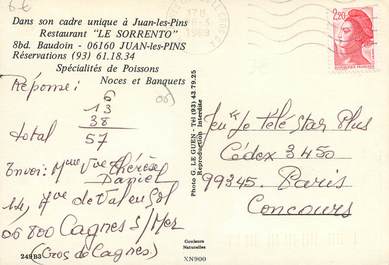 6€
Dans son cadre unique à Juan-les-Pins
Restaurant "LE SORRENTO"
8bd. Baudoin - 06160 JUAN-les-PINS
Réservations (93) 61.18.34
Spécialités de Poissons
Noces et Banquets
Réponse: 6
13
38
total 57
06
Envoi: Mme Vve Thérèse
Daniel
Ave de Val en Sol
06800 Cagnes S/Mer
(Cros de Cagnes)
249B3
Photo G. LE GUEN - Tél (93) 43.79.25
Reproduction Interdite
Couleurs
Naturelles
XN900
17H
1989
2,20
Jeu Le Télé Star Plus
Cédex 3450
99345. Paris
Concours